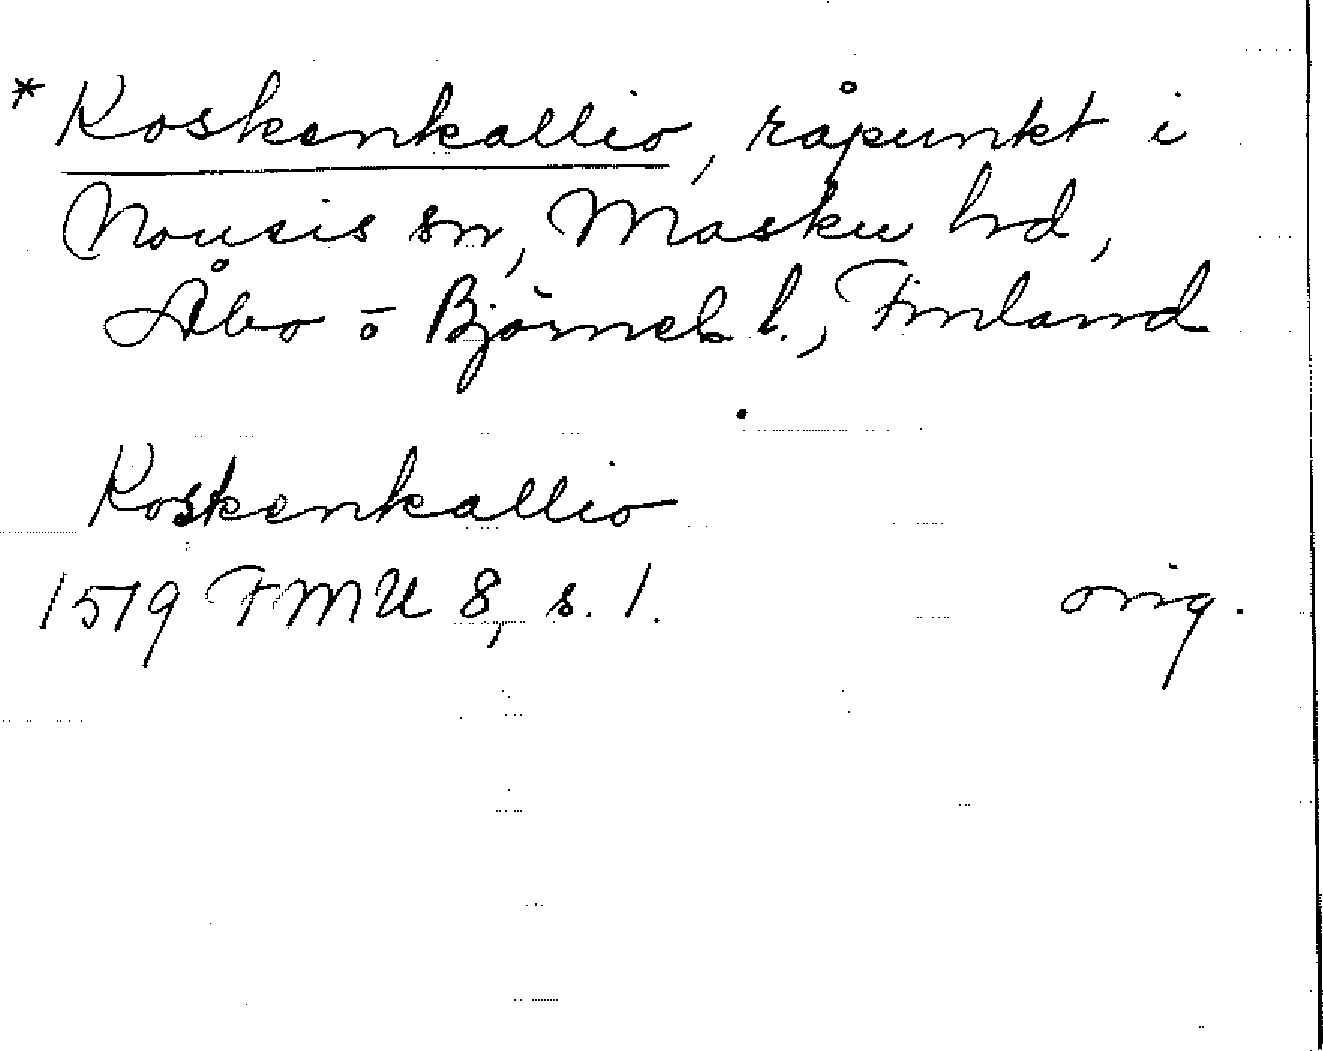 * Koskenkallio, råpunkt i
Nousis sn, Masku hd,
Åbo o Björneb l., Finland
Koskenkallio
1519 FMU 8, s. 1.
orig.